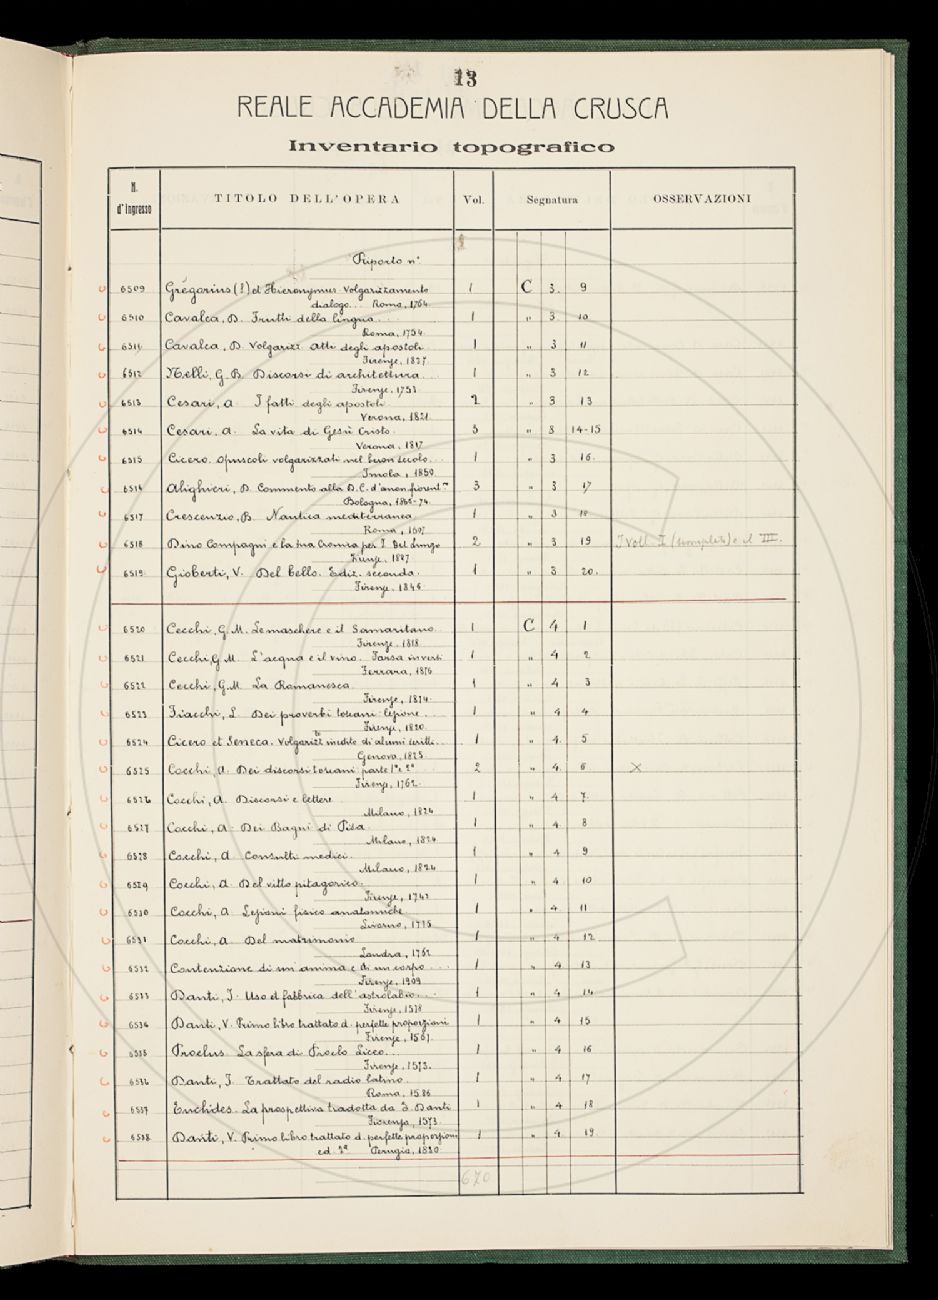 13
REALE ACCADEMIA DELLA CRUSCA
Inventario topografico
N. d'Ingresso TITOLO DELL'OPERA Vol. Segnatura OSSERVAZIONI
Riporto n°
6509 Gregorius (?) et Hieronymus. Volgarizzamento 1 C 3 9
dialogo... Roma, 1764
6510 Cavalca, D. Frutti della lingua... 1 " 3 10
Roma, 1754
6511 Cavalca, D. Volgarizz. atti degli apostoli 1 " 3 11
Firenze, 1837
6512 Nelli, G. B. Discorsi di architettura... 1 " 3 12
Firenze, 1753
6513 Cesari, A. I fatti degli apostoli 2 " 3 13
Verona, 1821
6514 Cesari, A. La vita di Gesù Cristo 5 " 3 14-15
Verona, 1817
6515 Cicero. Opuscoli volgarizzati nel buon secolo... 1 " 3 16.
Imola, 1850
6516 Alighieri, D. Commento alla D. C. d'anon. fiorent.no 3 " 3 17
Bologna, 1866-74
6517 Crescenzio, B. Nautica mediterranea 1 " 3 18
Roma, 1607
6518 Dino Compagni e la sua Cronica per I. Del Lungo 2 " 3 19 I voll. II (completi) e il III.
Firenze, 1887
6519 Gioberti, V. Del bello. Ediz. seconda. 1 " 3 20.
Firenze, 1846
6520 Cecchi, G. M. Le maschere e il Samaritano 1 C 4 1
Firenze, 1818
6521 Cecchi, G. M. L'acqua e il vino. Farsa in versi 1 " 4 2
Ferrara, 1876
6522 Cecchi, G. M. La Romanesca 1 " 4 3
Firenze, 1874
6523 Fiacchi, L. Dei proverbi toscani lezione... 1 " 4 4
Firenze, 1820
6524 Cicero et Seneca. Volgarizz.ti inedite di alcuni scritti... 1 " 4 5
Genova, 1825
6525 Cocchi, A. Dei discorsi toscani parte 1ª e 2ª 2 " 4 6 X
Firenze, 1762
6526 Cocchi, A. Discorsi e lettere 1 " 4 7.
Milano, 1824
6527 Cocchi, A. Dei Bagni di Pisa 1 " 4 8
Milano, 1824
6528 Cocchi, A. Consulti medici. 1 " 4 9
Milano, 1824
6529 Cocchi, A. Del vitto pitagorico. 1 " 4 10
Firenze, 1743
6530 Cocchi, A. Lezioni fisico anatomiche 1 " 4 11
Livorno, 1775
6531 Cocchi, A. Del matrimonio 1 " 4 12
Londra, 1762
6532 Contenzione di un'anima e di un corpo... 1 " 4 13
Firenze, 1909
6533 Danti, I. Uso et fabbrica dell'astrolabio... 1 " 4 14
Firenze, 1578
6534 Danti, V. Primo libro trattato d. perfette proporzioni 1 " 4 15
Firenze, 1567
6535 Proclus. La sfera di Proclo Liceo... 1 " 4 16
Firenze, 1573.
6536 Danti, I. Trattato del radio latino. 1 " 4 17
Roma, 1586
6537 Euclides. La prospettiva tradotta da I. Danti 1 " 4 18
Fiorenza, 1573
6538 Danti, V. Primo libro trattato d. perfette proporzioni 1 " 4 19
ed. 2ª Perugia, 1830
670